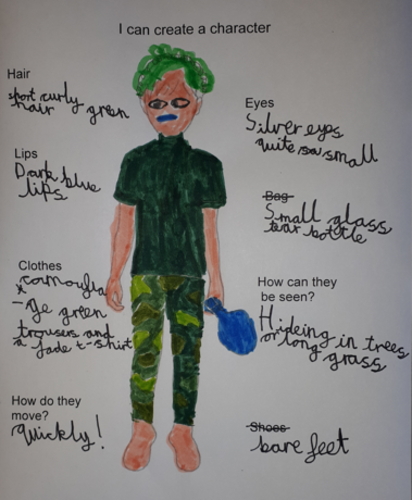 I can create a character
Hair
short curly
hair green
Eyes
Silver eyes
quite small
Lips
Dark blue
lips
Bag
Small glass
tear bottle
Clothes
camoufla
-ge green
trousers and
a jade t-shirt
How can they
be seen?
Hideing in trees
or long
grass
How do they
move?
quickly!
Shoes
bare feet